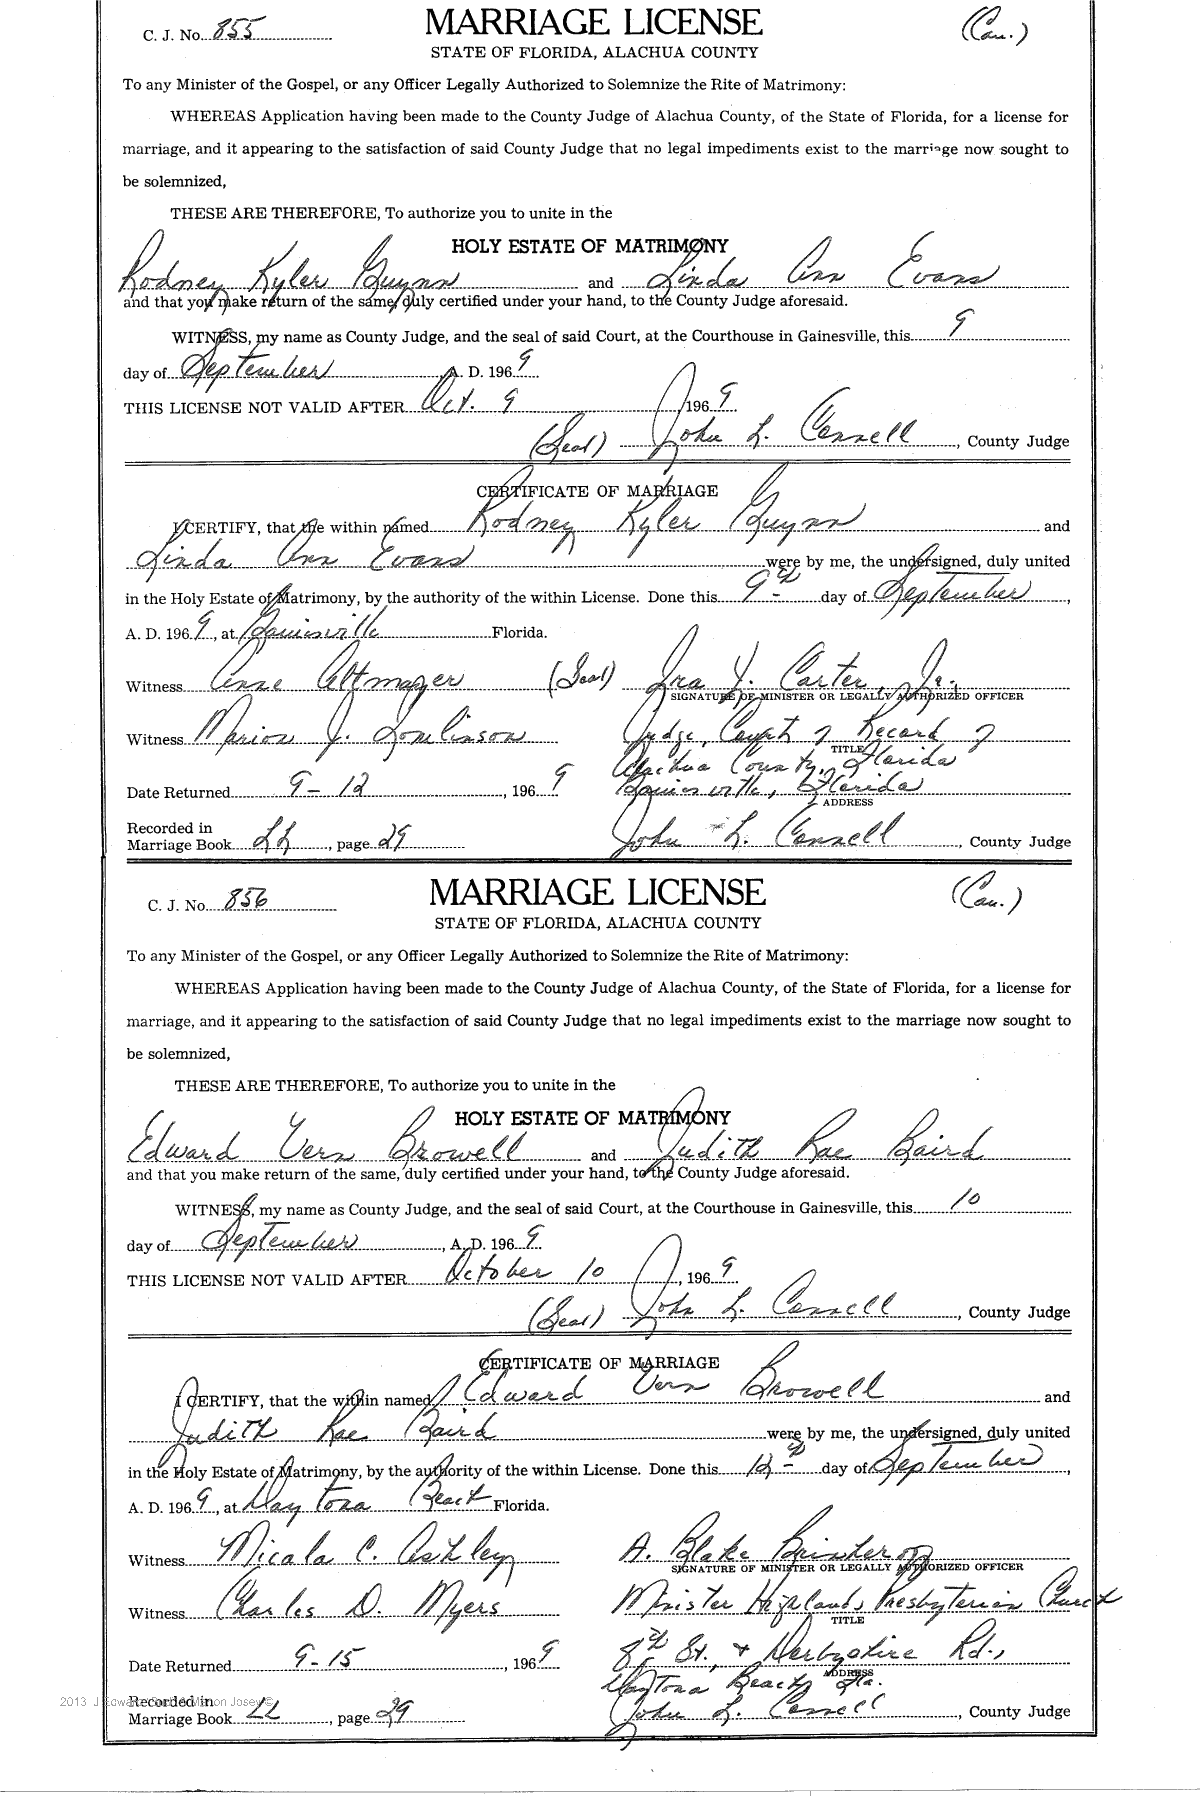 C. J. No. 855 MARRIAGE LICENSE (Cau.)
STATE OF FLORIDA, ALACHUA COUNTY
To any Minister of the Gospel, or any Officer Legally Authorized to Solemnize the Rite of Matrimony:
WHEREAS Application having been made to the County Judge of Alachua County, of the State of Florida, for a license for
marriage, and it appearing to the satisfaction of said County Judge that no legal impediments exist to the marriage now sought to
be solemnized,
THESE ARE THEREFORE, To authorize you to unite in the
HOLY ESTATE OF MATRIMONY
Rodney Kyler Guynn and Linda Ann Evans
and that you make return of the same, duly certified under your hand, to the County Judge aforesaid.
WITNESS, my name as County Judge, and the seal of said Court, at the Courthouse in Gainesville, this 9
day of September A. D. 1969
THIS LICENSE NOT VALID AFTER Oct. 9, 1969
(Seal) John L. Connell, County Judge
CERTIFICATE OF MARRIAGE
I CERTIFY, that the within named Rodney Kyler Guynn and
Linda Ann Evans were by me, the undersigned, duly united
in the Holy Estate of Matrimony, by the authority of the within License. Done this 9th day of September,
A. D. 1969, at Gainesville Florida.
Witness Anne Altmayer (Seal) Ira J. Carter, Jr.
SIGNATURE OF MINISTER OR LEGALLY AUTHORIZED OFFICER
Witness Marion J. Tomlinson Judge, Court of Record of
TITLE
Alachua County, Florida
Date Returned 9-12, 1969 Gainesville, Florida
ADDRESS
Recorded in
Marriage Book LL, page 29 John L. Connell, County Judge
C. J. No. 856 MARRIAGE LICENSE (Cau.)
STATE OF FLORIDA, ALACHUA COUNTY
To any Minister of the Gospel, or any Officer Legally Authorized to Solemnize the Rite of Matrimony:
WHEREAS Application having been made to the County Judge of Alachua County, of the State of Florida, for a license for
marriage, and it appearing to the satisfaction of said County Judge that no legal impediments exist to the marriage now sought to
be solemnized,
THESE ARE THEREFORE, To authorize you to unite in the
HOLY ESTATE OF MATRIMONY
Edward Vern Browell and Judith Rae Baird
and that you make return of the same, duly certified under your hand, to the County Judge aforesaid.
WITNESS, my name as County Judge, and the seal of said Court, at the Courthouse in Gainesville, this 10
day of September, A. D. 1969
THIS LICENSE NOT VALID AFTER October 10, 1969
(Seal) John L. Connell, County Judge
CERTIFICATE OF MARRIAGE
I CERTIFY, that the within named Edward Vern Browell and
Judith Rae Baird were by me, the undersigned, duly united
in the Holy Estate of Matrimony, by the authority of the within License. Done this 12th day of September,
A. D. 1969, at Daytona Beach Florida.
Witness Micala C. Ashley A. Blake Brinkerhoff
SIGNATURE OF MINISTER OR LEGALLY AUTHORIZED OFFICER
Witness Charles D. Myers Minister Highlands Presbyterian Church
TITLE
Date Returned 9-15, 1969 8th St., & Derbyshire Rd.,
ADDRESS
Daytona Beach, Fla.
Recorded in
Marriage Book LL, page 29 John L. Connell, County Judge